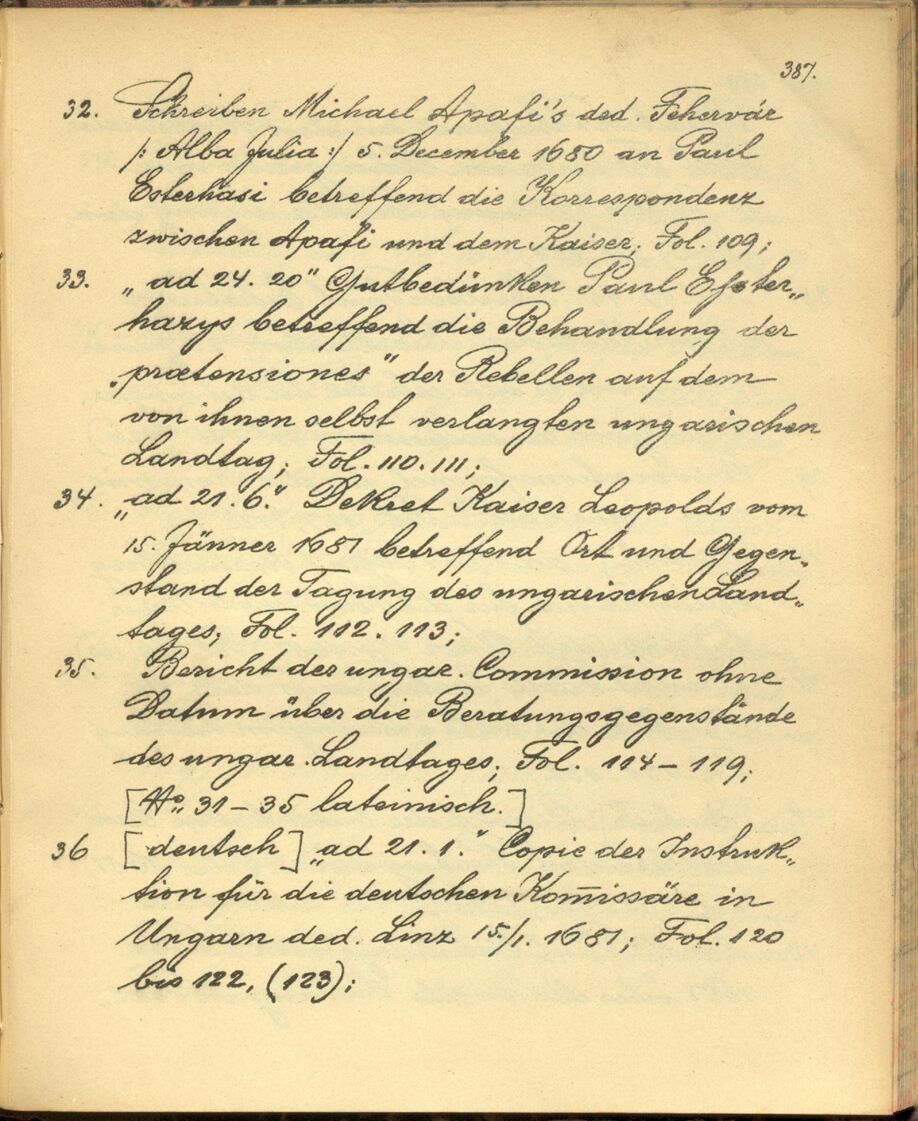 387.
32. Schreiben Michael Apafi's ded. Fehervár
/: Alba Julia :/ 5. December 1680 an Paul
Esterhasi betreffend die Korrespondenz
zwischen Apafi und dem Kaiser; Fol. 109;
33. „ad 24. 20" Gutbedünken Paul Esster„
hazys betreffend die Behandlung der
„prætensiones" der Rebellen auf dem
von ihnen selbst verlangten ungarischen
Landtag; Fol. 110. 111;
34. „ad 21. 6." Dekret Kaiser Leopolds vom
15. Jänner 1681 betreffend Ort und Gegen„
stand der Tagung des ungarischen Land„
tages; Fol. 112. 113;
35. Bericht der ungar. Commission ohne
Datum über die Beratungsgegenstände
des ungar. Landtages; Fol. 114 – 119;
[No. 31 – 35 lateinisch.]
36 [deutsch] „ad 21. 1." Copie der Instruk„
tion für die deutschen Kom̅issäre in
Ungarn ded. Linz 15./1. 1681; Fol. 120
bis 122, (123);